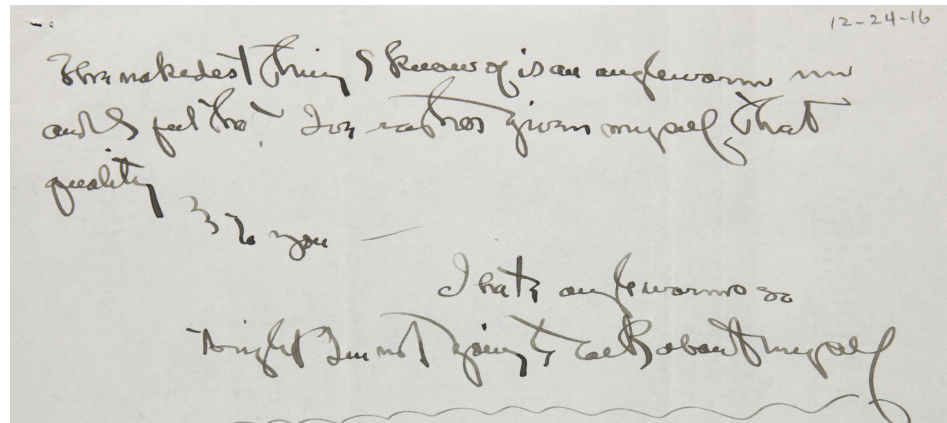 12-24-16
The nakedest thing I know of is an angleworm
and I feel that Ive rather given myself that
quality
to you —
I hate angleworms so
tonight Im not going to talk about myself